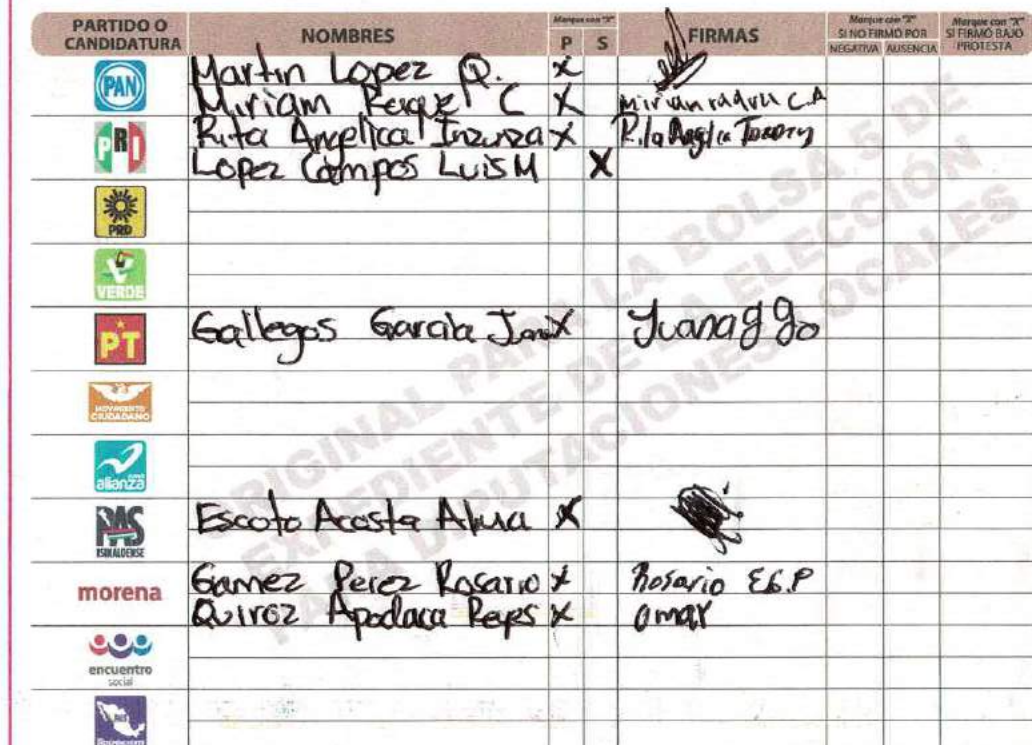 PARTIDO O CANDIDATURA NOMBRES Marque con "X" P S FIRMAS Marque con "X" SI NO FIRMÓ POR NEGATIVA AUSENCIA Marque con "X" SI FIRMÓ BAJO PROTESTA
PAN Martin Lopez Q. X
Miriam Raquel C X
PRI Rita Angelica Inzunza X
Lopez Campos Luis M X
PRD
VERDE
PT Gallegos Garcia X Juana g go
MOVIMIENTO CIUDADANO
alianza
PAS SINALOENSE Escoto Acosta X
morena Gamez Perez Rosario X Rosario E G.P
Quiroz Apodaca Reyes X Omar
encuentro social
ORIGINAL PARA LA BOLSA 5 DE
EXPEDIENTE DE LA ELECCIÓN
PARA DIPUTACIONES LOCALES